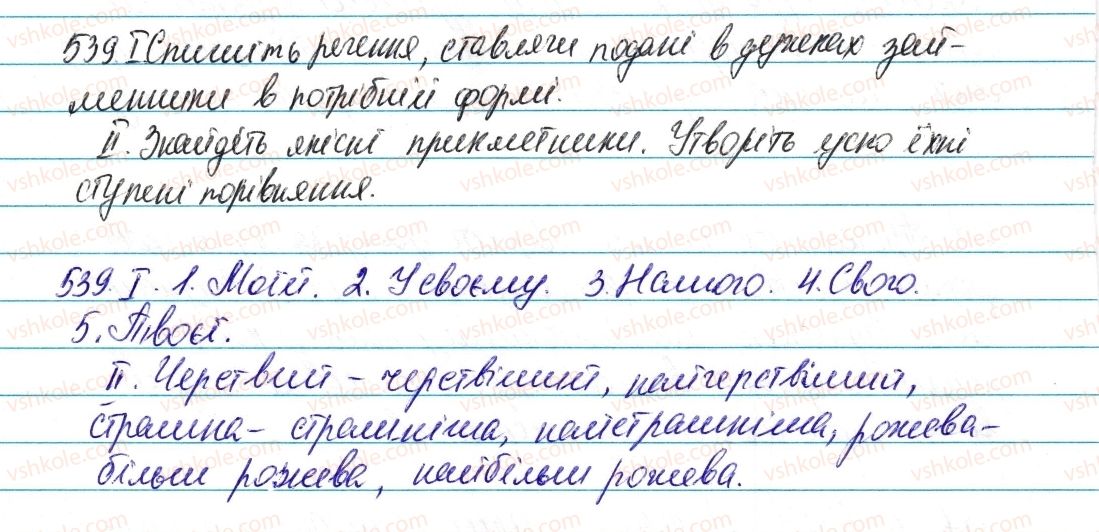 539 I Спишіть речення, ставлячи подані в дужках зай-
менники в потрібній формі.
II. Знайдіть якісні прикметники. Утворіть усно їхні
ступені порівняння.
539. I. 1. Моїй. 2. У своєму. 3. Нашого. 4. Свого.
5. Твоєї.
II. Черствий – черствіший, найчерствіший,
страшна – страшніша, найстрашніша, рожева–
більш рожева, найбільш рожева.